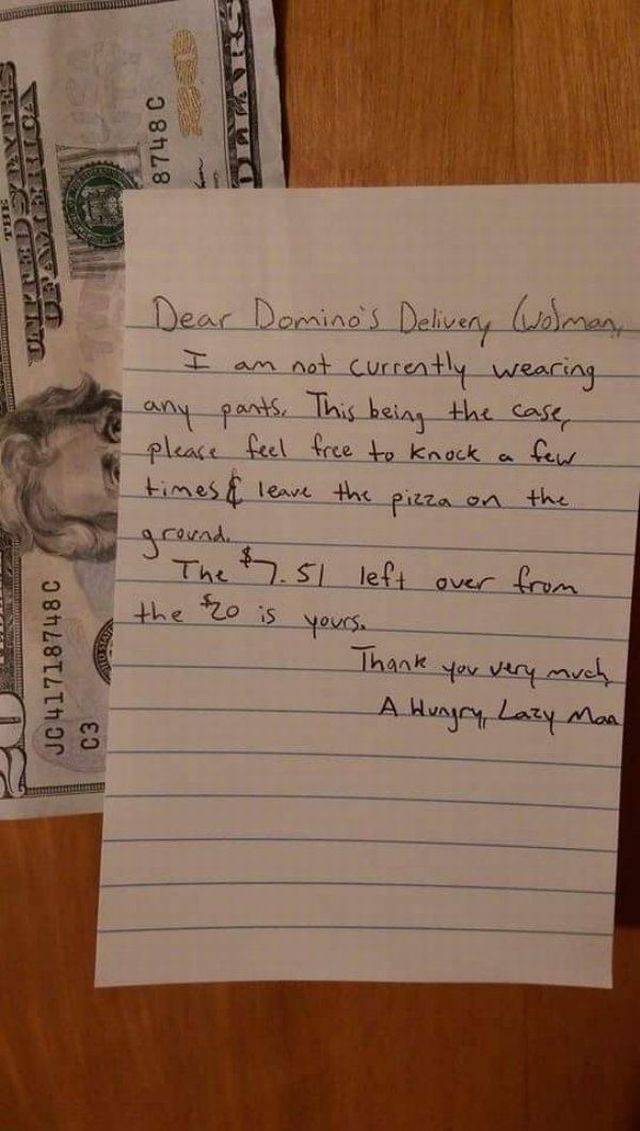 THE
UNITED STATES
OF AMERICA
8748C
20
JC41718748C
C3
Dear Domino's Delivery (Wo)man,
I am not currently wearing
any pants. This being the case,
please feel free to knock a few
times & leave the pizza on the
ground.
The $7.51 left over from
the $20 is yours.
Thank you very much,
A Hungry, Lazy Man